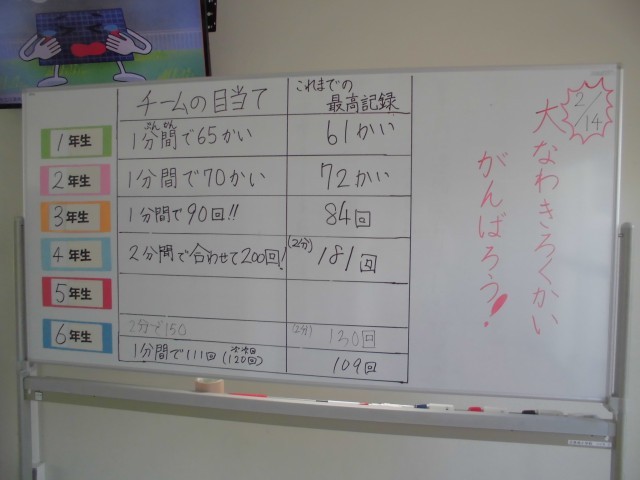 チームの目当て
これまでの
最高記録
1年生
1分間で65かい
ぷん かん
61かい
2年生
1分間で70かい
72かい
3年生
1分間で90回!!
84回
4年生
2分間で合わせて200回!
(2分)
181回
5年生
6年生
2分で150
(2分)
130回
1分間で111回 (120回)
109回
2/14
大なわきろくかい
がんばろう!